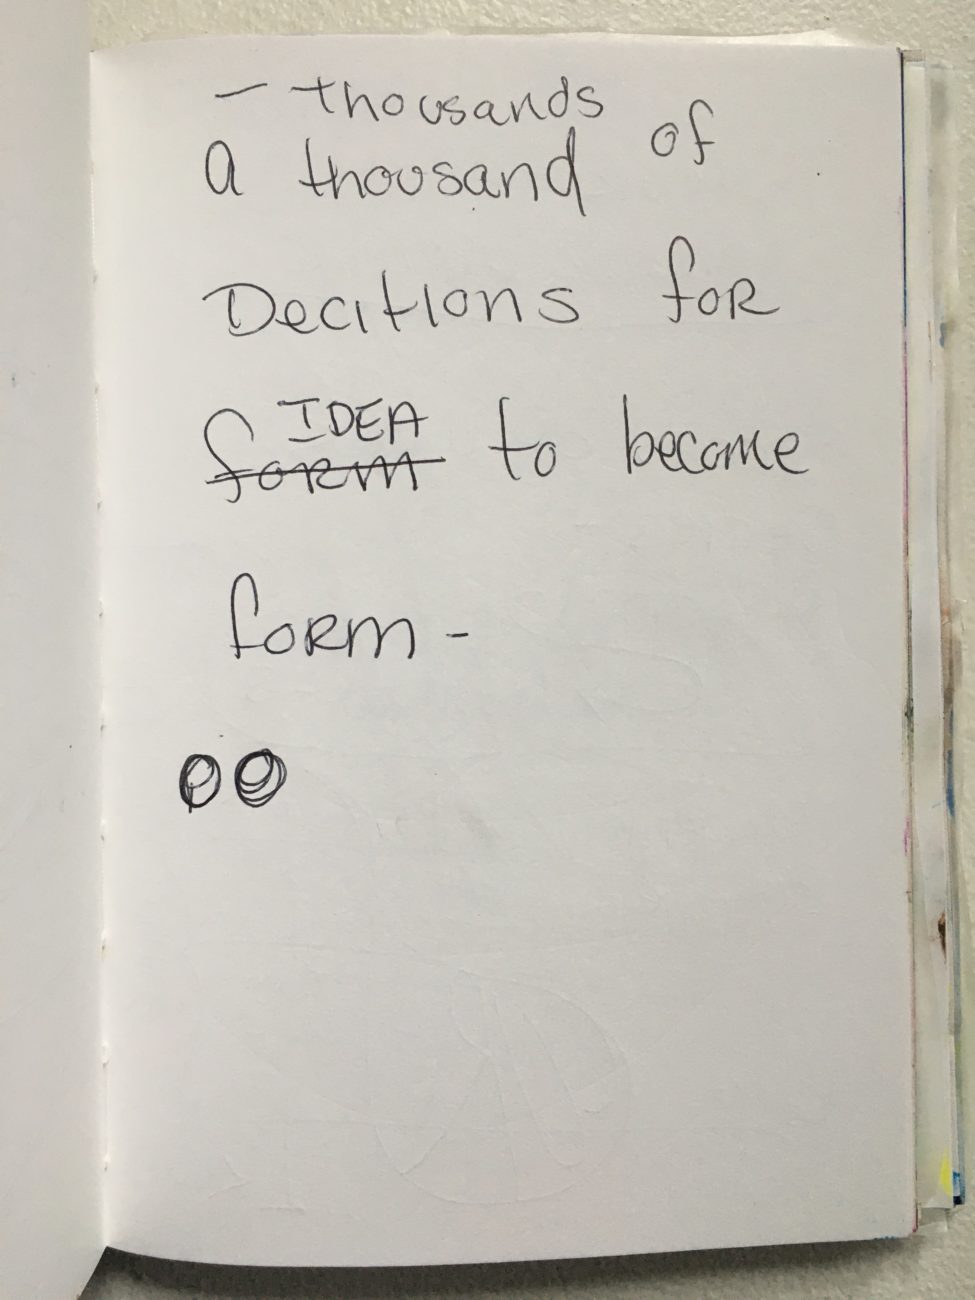 - thousands
a thousand of
Decitions for
form IDEA to become
form -